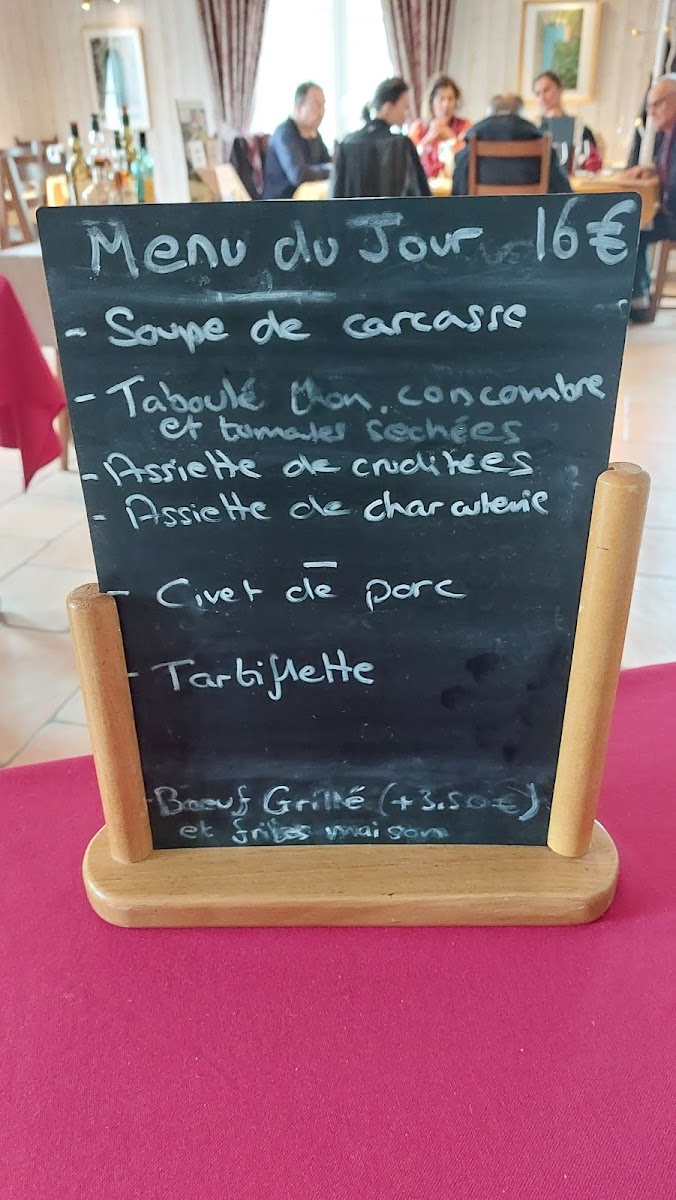 Menu du Jour 16€
- Soupe de carcasse
- Taboulé thon, concombre
et tomates sechées
- Assiette de cruditées
- Assiette de charcuterie
—
- Civet de porc
- Tartiflette
- Boeuf Grillé (+3.50€)
et frites maison